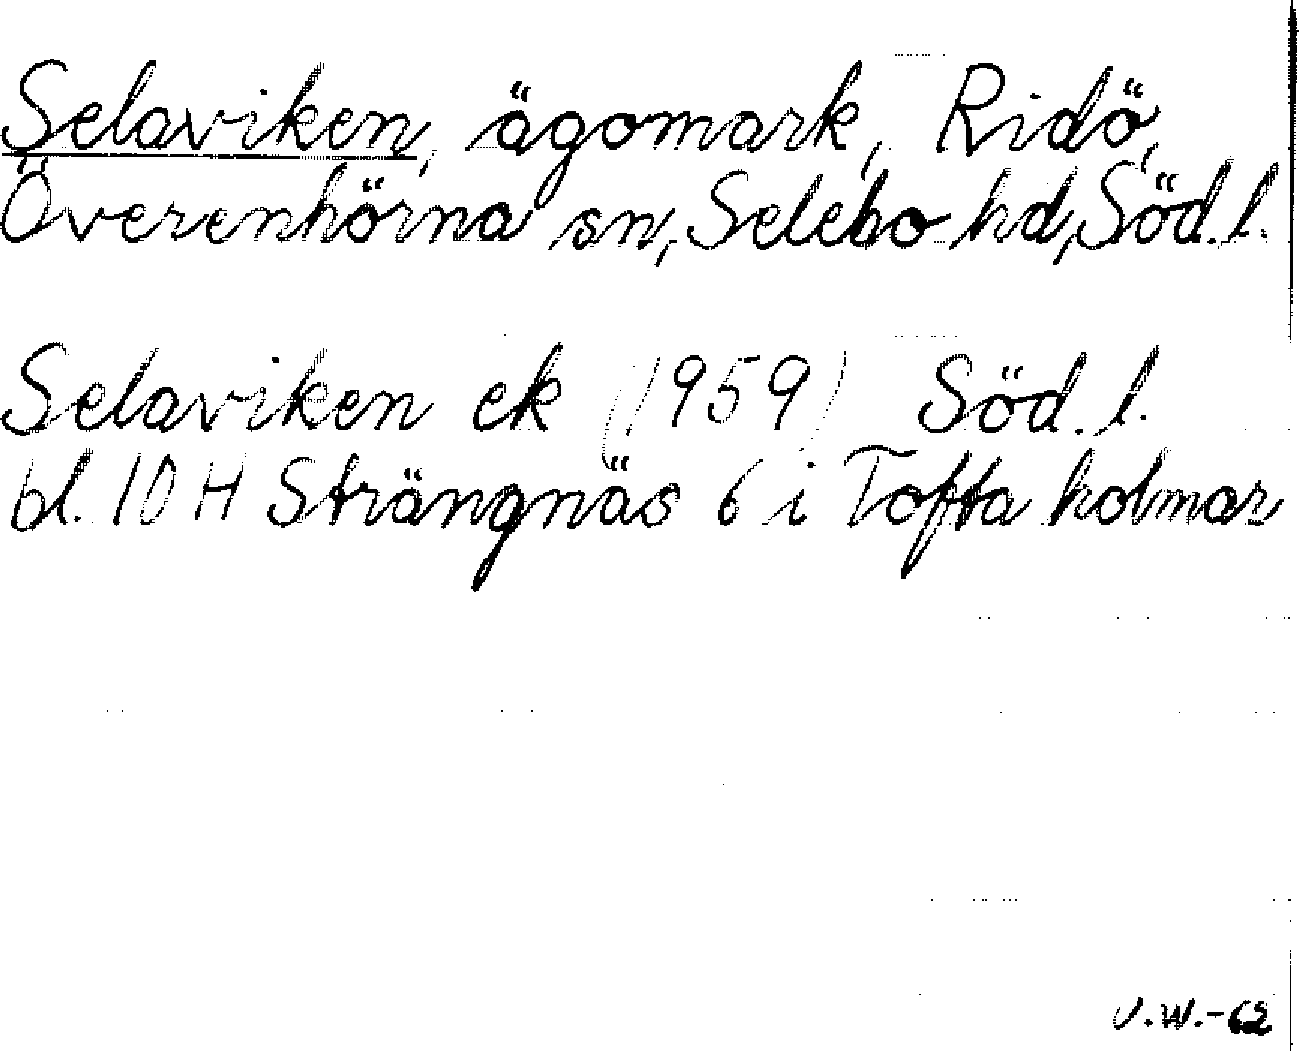 Selaviken, ägomark, Ridö,
Överenhörna sn, Selebo hd, Söd. l.
Selaviken ek (1959) Söd. l.
bl. 10 H Strängnäs 6 i Tofta holmar
V.W.-62